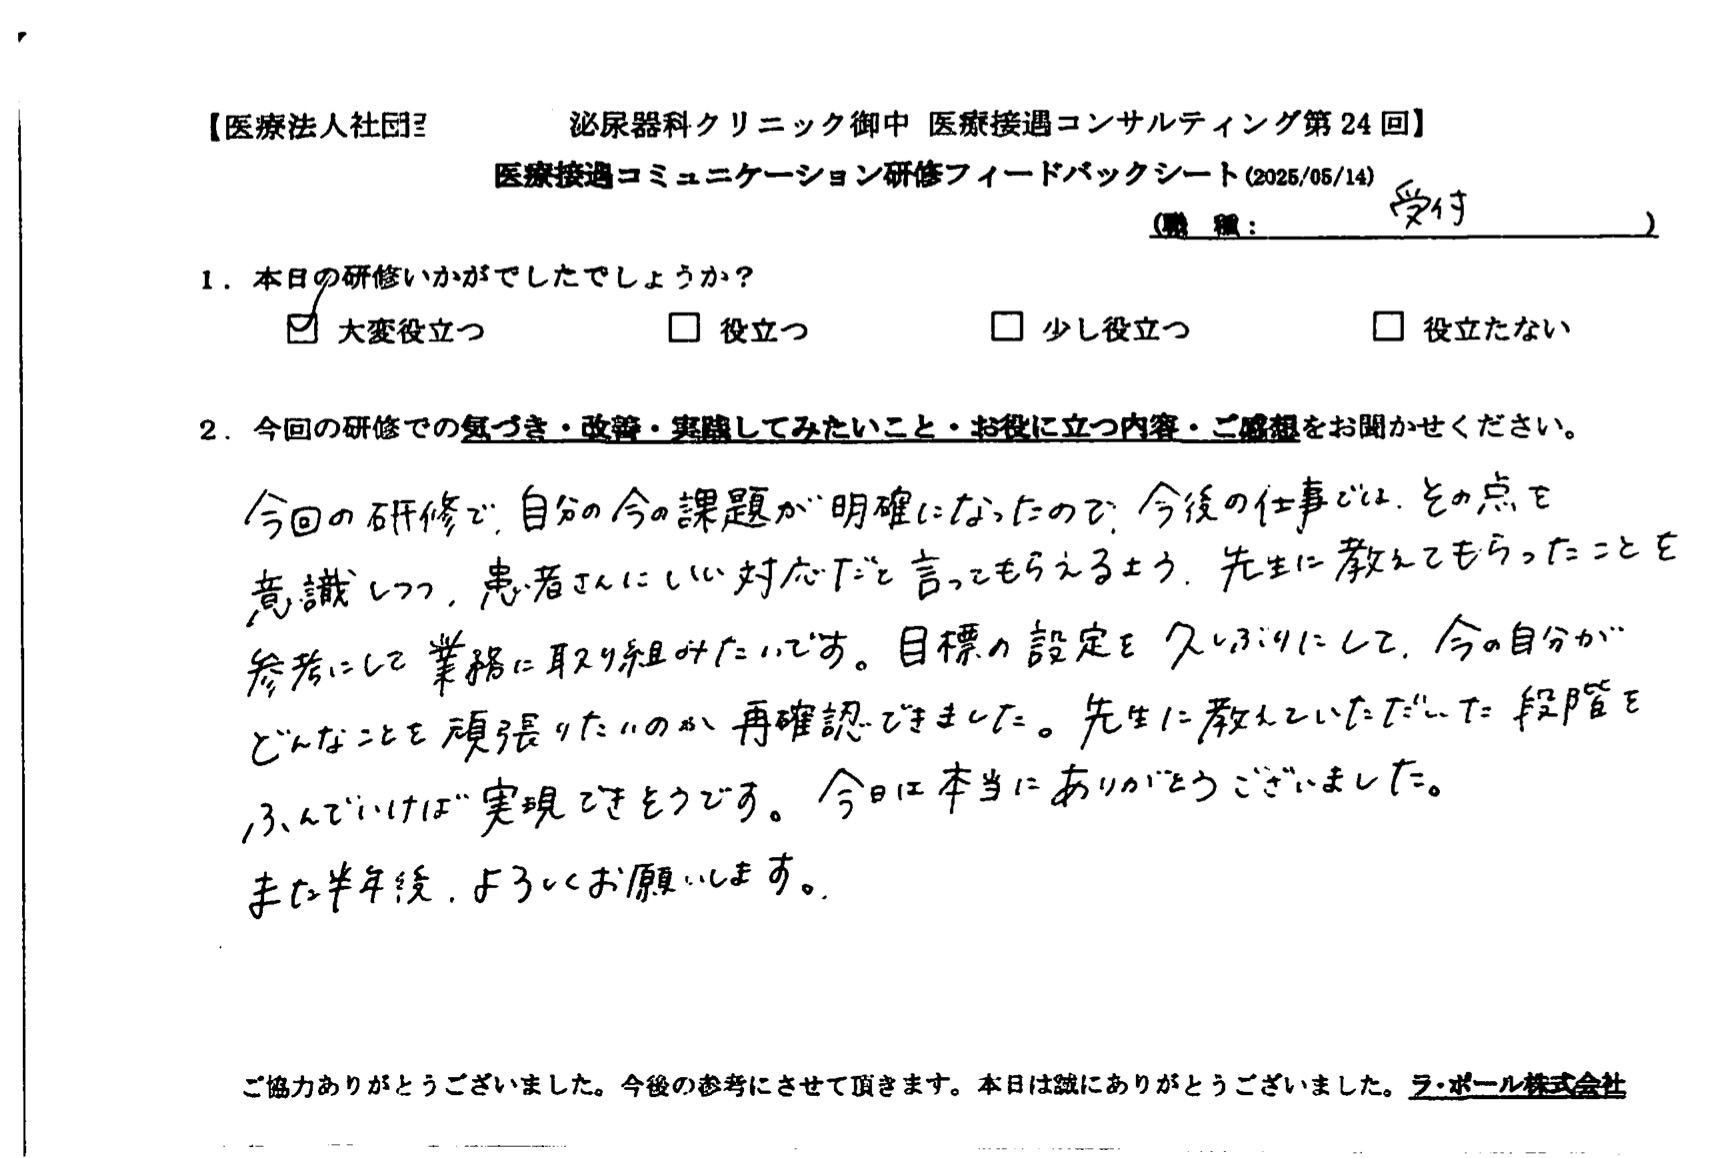 【医療法人社団 泌尿器科クリニック御中 医療接遇コンサルティング第24回】
医療接遇コミュニケーション研修フィードバックシート(2025/05/14)
(職 種: 受付 )
1. 本日の研修いかがでしたでしょうか?
☑ 大変役立つ □ 役立つ □ 少し役立つ □ 役立たない
2. 今回の研修での気づき・改善・実践してみたいこと・お役に立つ内容・ご感想をお聞かせください。
今回の研修で、自分の今の課題が明確になったので、今後の仕事では、その点を
意識しつつ、患者さんにいい対応だと言ってもらえるよう、先生に教えてもらったことを
参考にして業務に取り組みたいです。目標の設定を久しぶりにして、今の自分が
どんなことを頑張りたいのか再確認できました。先生に教えていただいた段階を
ふんでいけば実現できそうです。今日は本当にありがとうございました。
また半年後、よろしくお願いします。
ご協力ありがとうございました。今後の参考にさせて頂きます。本日は誠にありがとうございました。ラ・ポール株式会社